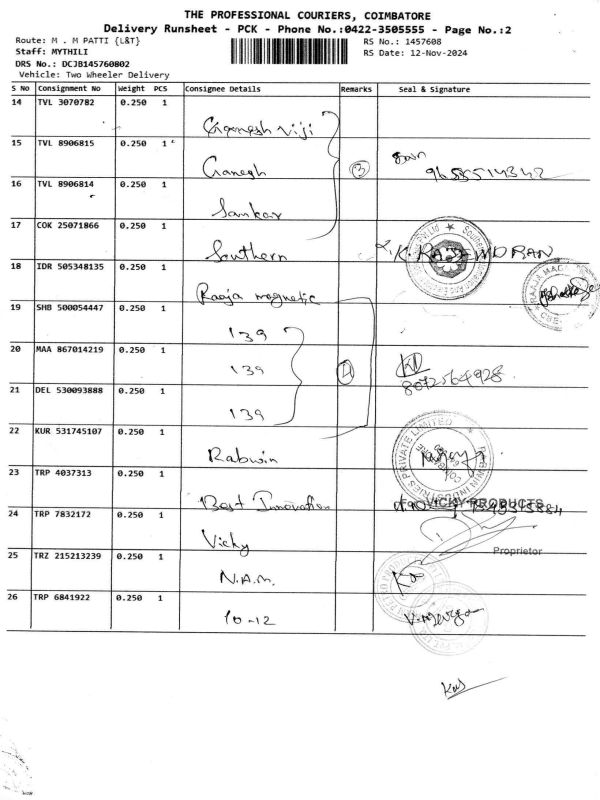 THE PROFESSIONAL COURIERS, COIMBATORE
Delivery Runsheet - PCK - Phone No.:0422-3505555 - Page No.:2
Route: M . M PATTI {L&T}
RS No.: 1457608
Staff: MYTHILI
RS Date: 12-Nov-2024
DRS No.: DCJB145760802
Vehicle: Two Wheeler Delivery
S No Consignment No Weight PCS Consignee Details Remarks Seal & Signature
14 TVL 3070782 0.250 1
Ganesh Viji
15 TVL 8906815 0.250 1
Ganesh 3 9655514342
16 TVL 8906814 0.250 1
Sankar
17 COK 25071866 0.250 1
Southern K. RAJENDRAN
18 IDR 505348135 0.250 1
Raaja magnetic
19 SHB 500054447 0.250 1
139
20 MAA 867014219 0.250 1
139 4 8072564928
21 DEL 530093888 0.250 1
139
22 KUR 531745107 0.250 1
Rabwin
23 TRP 4037313 0.250 1
Best Innovation VICKY PRODUCTS
24 TRP 7832172 0.250 1
Vicky Proprietor
25 TRZ 215213239 0.250 1
N.A.M.
26 TRP 6841922 0.250 1
10-12